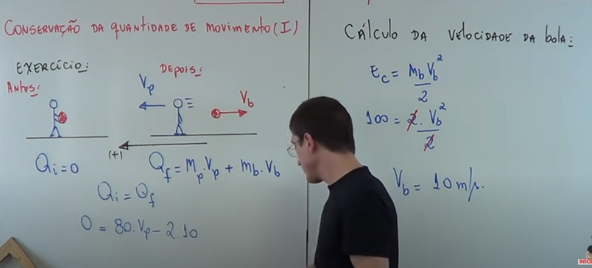 CONSERVAÇÃO DA QUANTIDADE DE MOVIMENTO (I)
EXERCÍCIO:
ANTES:
DEPOIS:
Vp
Vb
(+)
Qi = 0
Qf = Mp Vp + mb . Vb
Qi = Qf
0 = 80 . Vp - 2 . 10
CÁLCULO DA VELOCIDADE DA BOLA:
Ec = mb Vb² / 2
100 = 2 . Vb² / 2
Vb = 10 m/s.